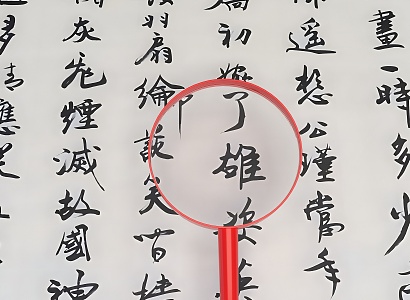 畫一時多少
遙想公瑾當年
喬初嫁了雄姿英
羽扇綸巾談笑間檣
灰飛煙滅故國神
多情應笑